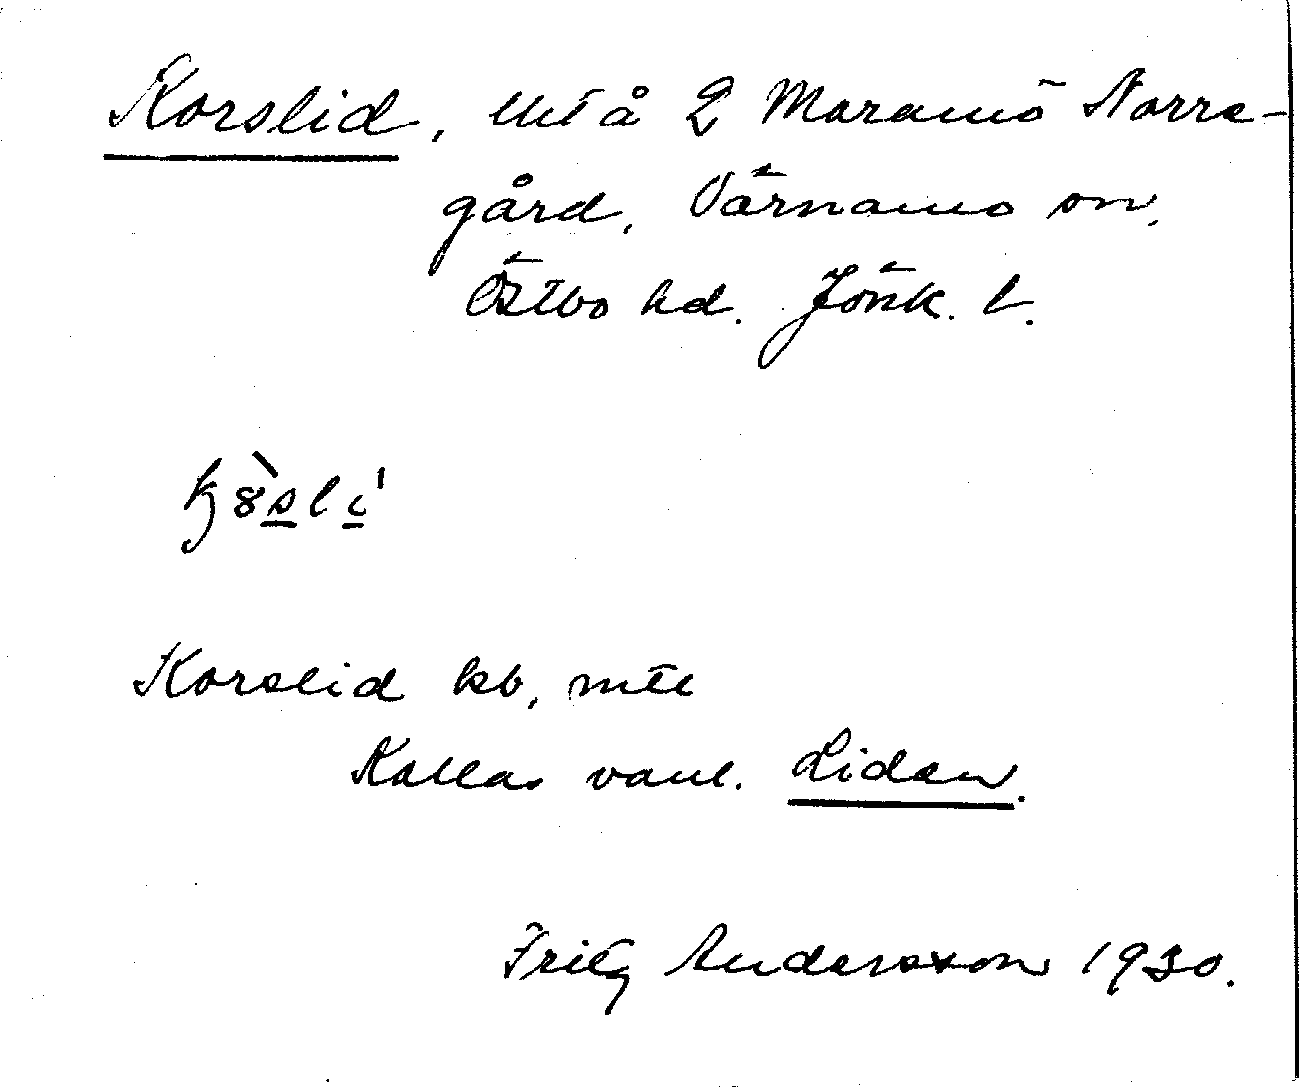 Korslid, utfl å 2 Maramö Norre-
gård, Värnamo sn,
Östbo hd. Jönk. l.
Korslid kb, mtl
Kallas vanl. Liden.
Fritz Andersson 1930.